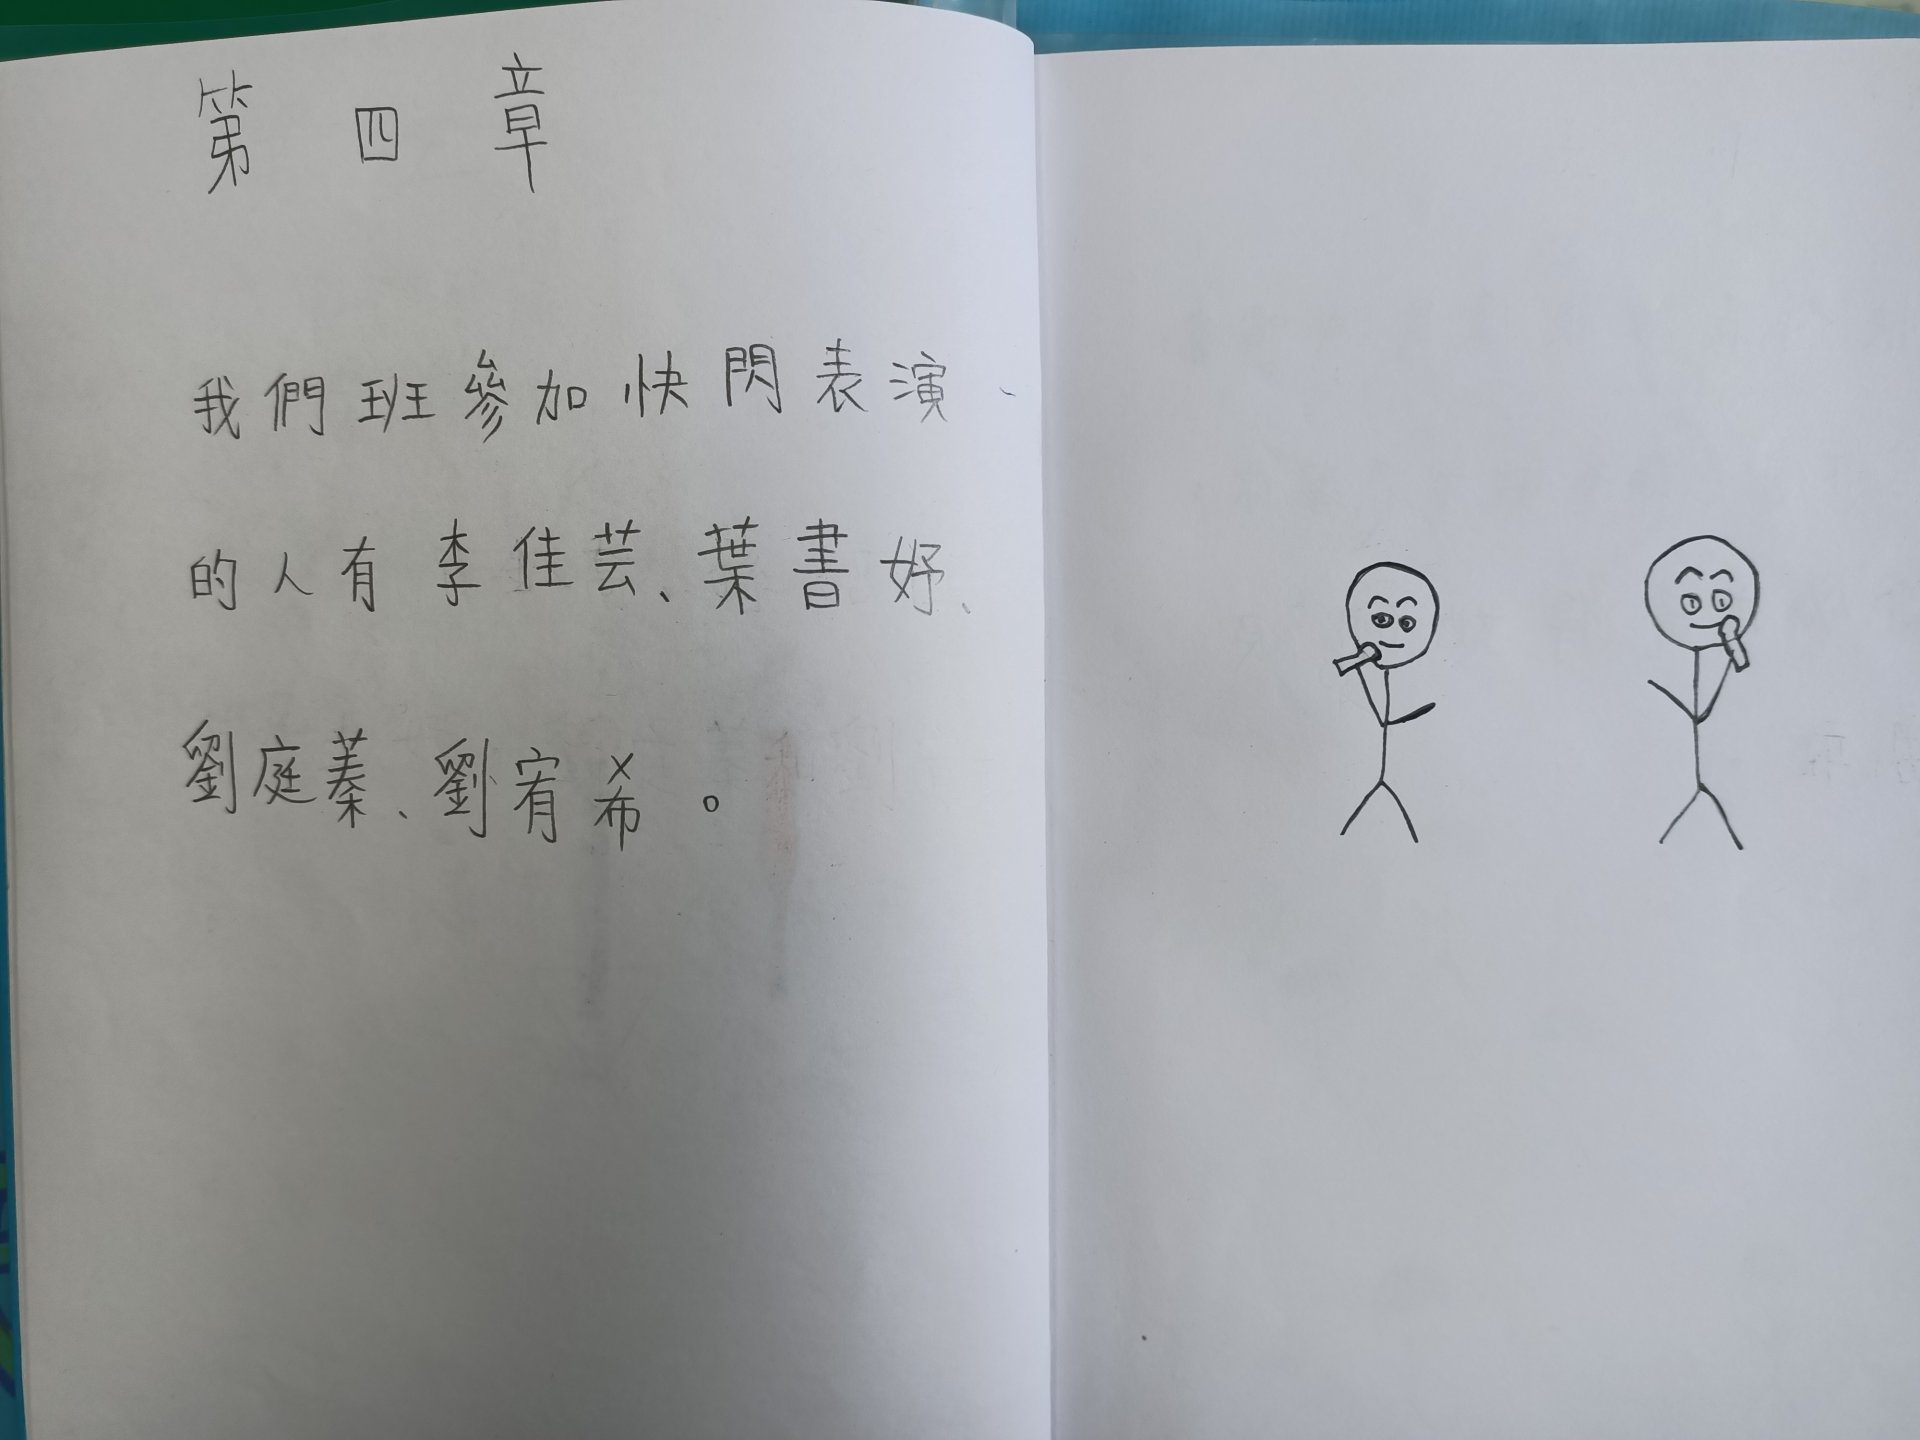 第四章
我們班參加快閃表演、
的人有李佳芸、葉書妤、
劉庭蓁、劉宥希。